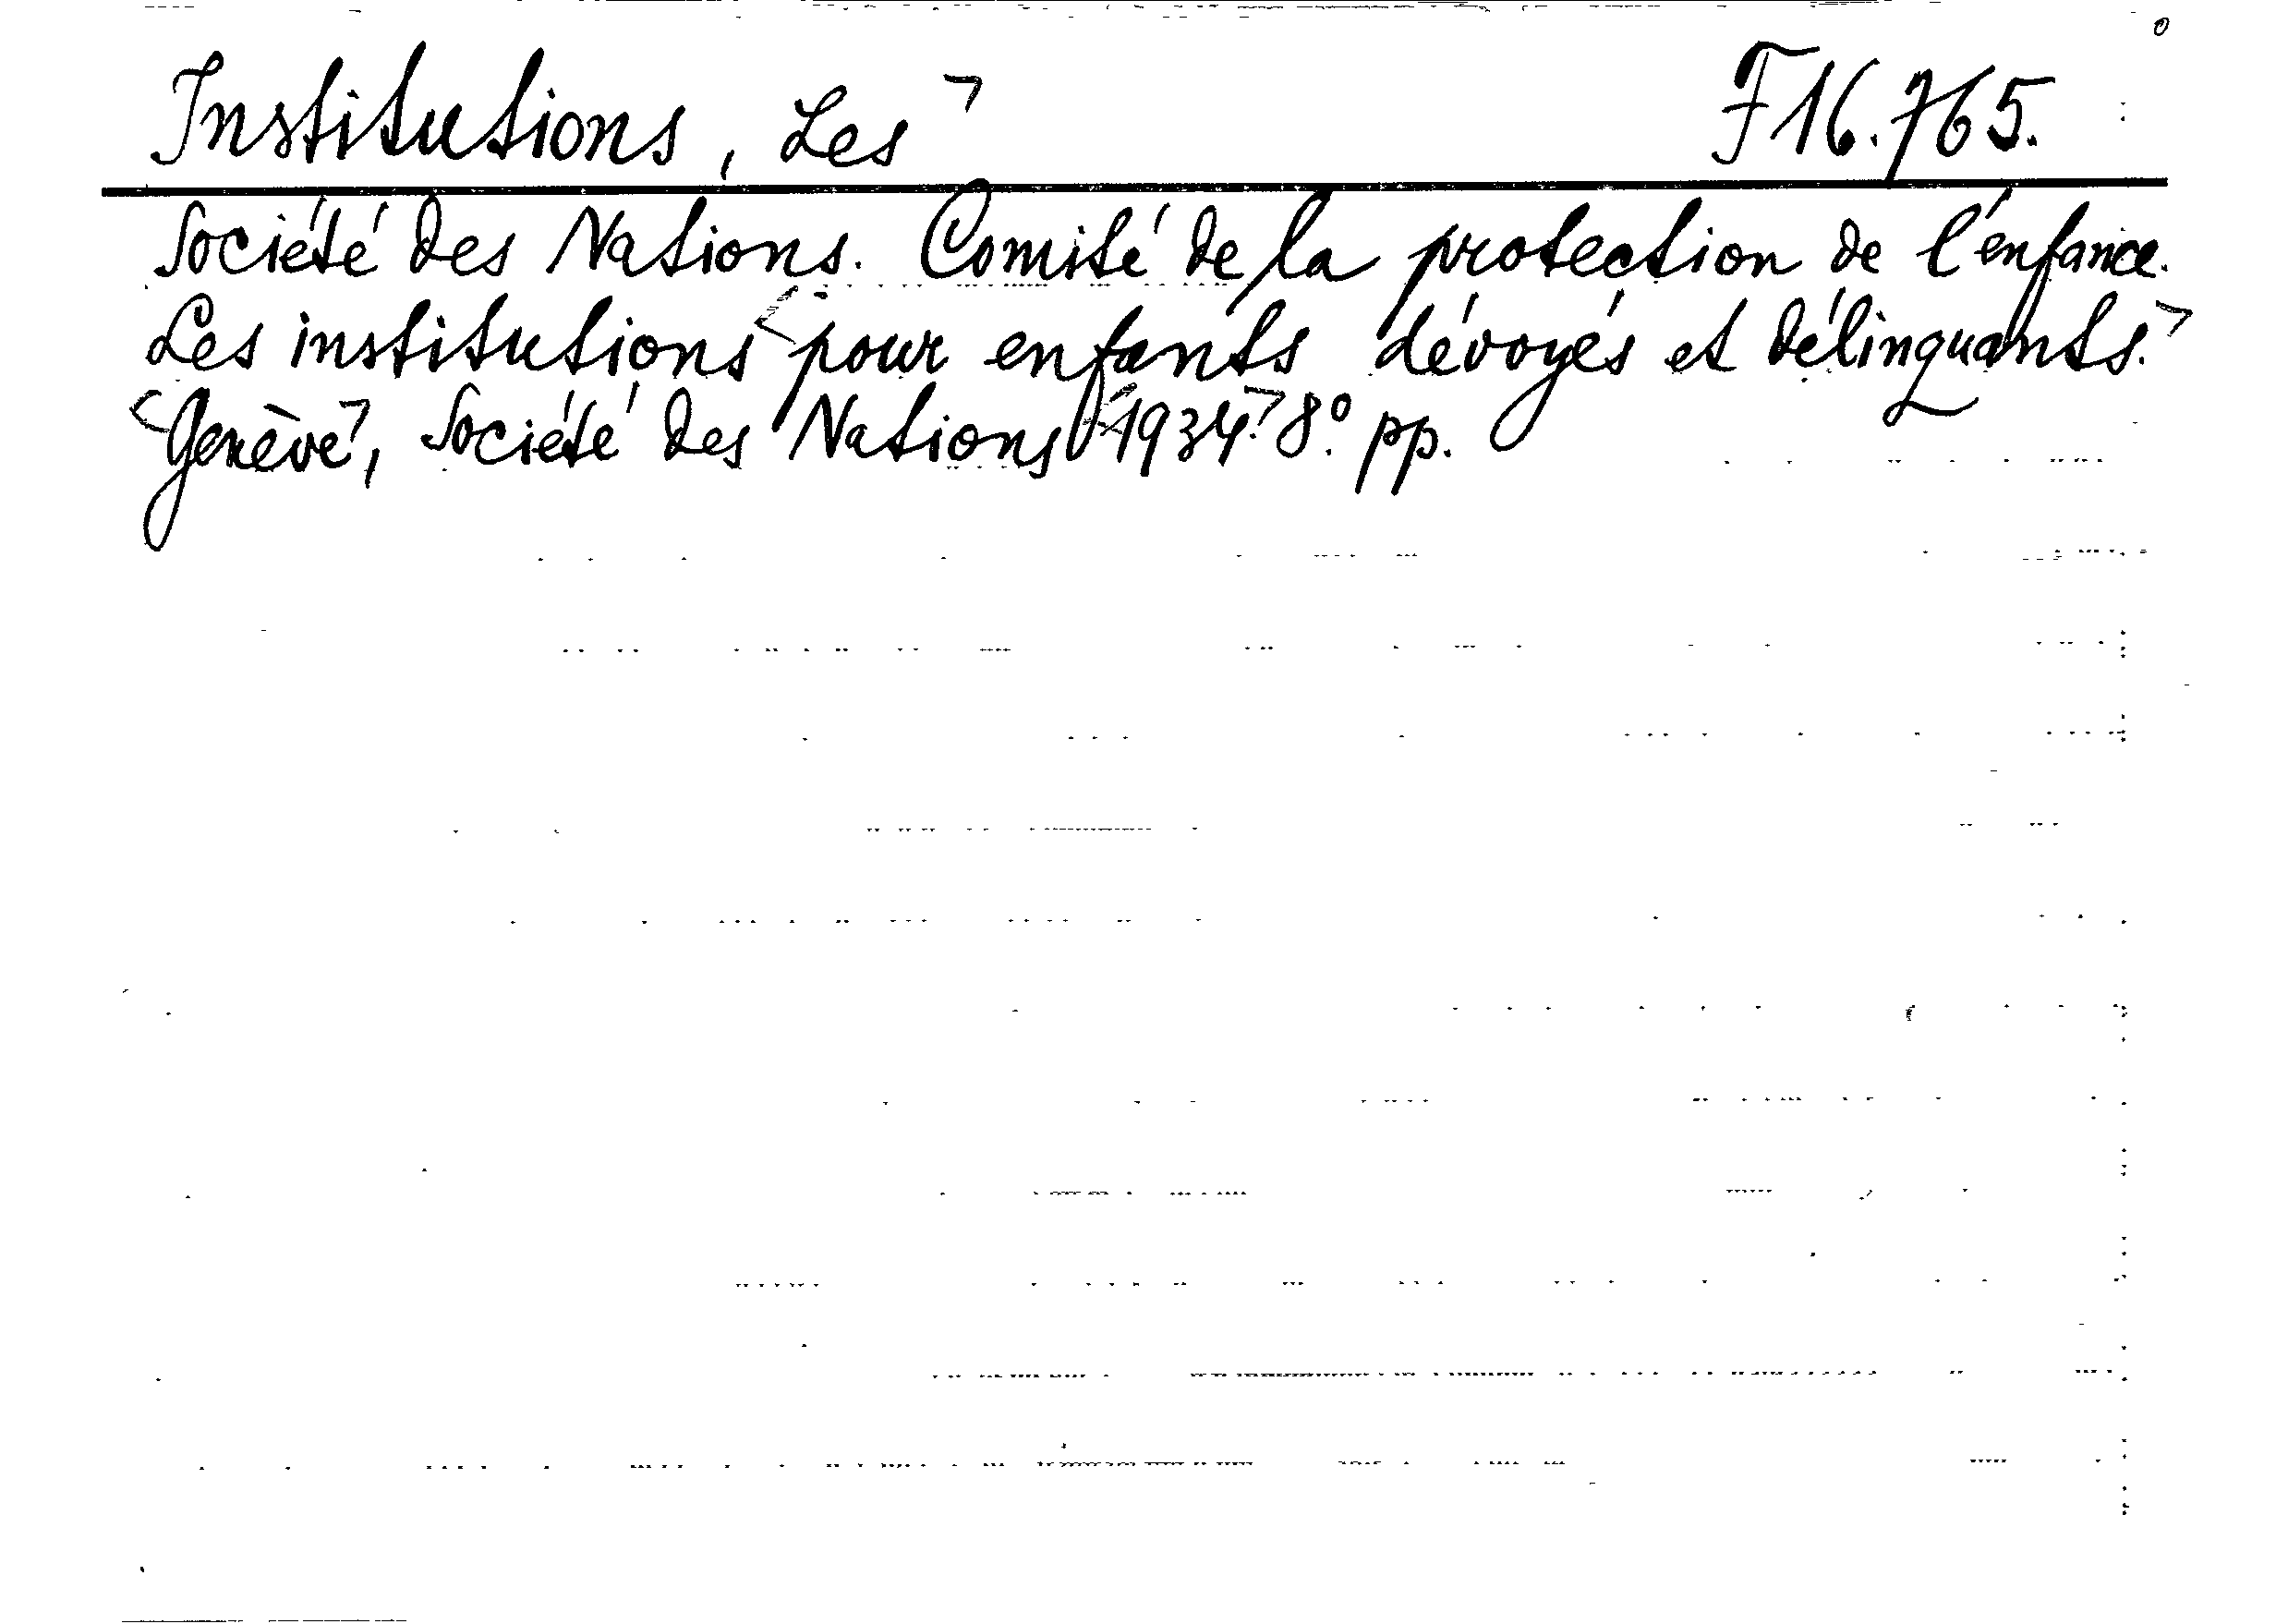 Institutions, Les F16.765.
Société des Nations. Comité de la protection de l'enfance.
Les institutions pour enfants dévoyés et délinquants.
Genève, Société des Nations 1934. 8º. pp.